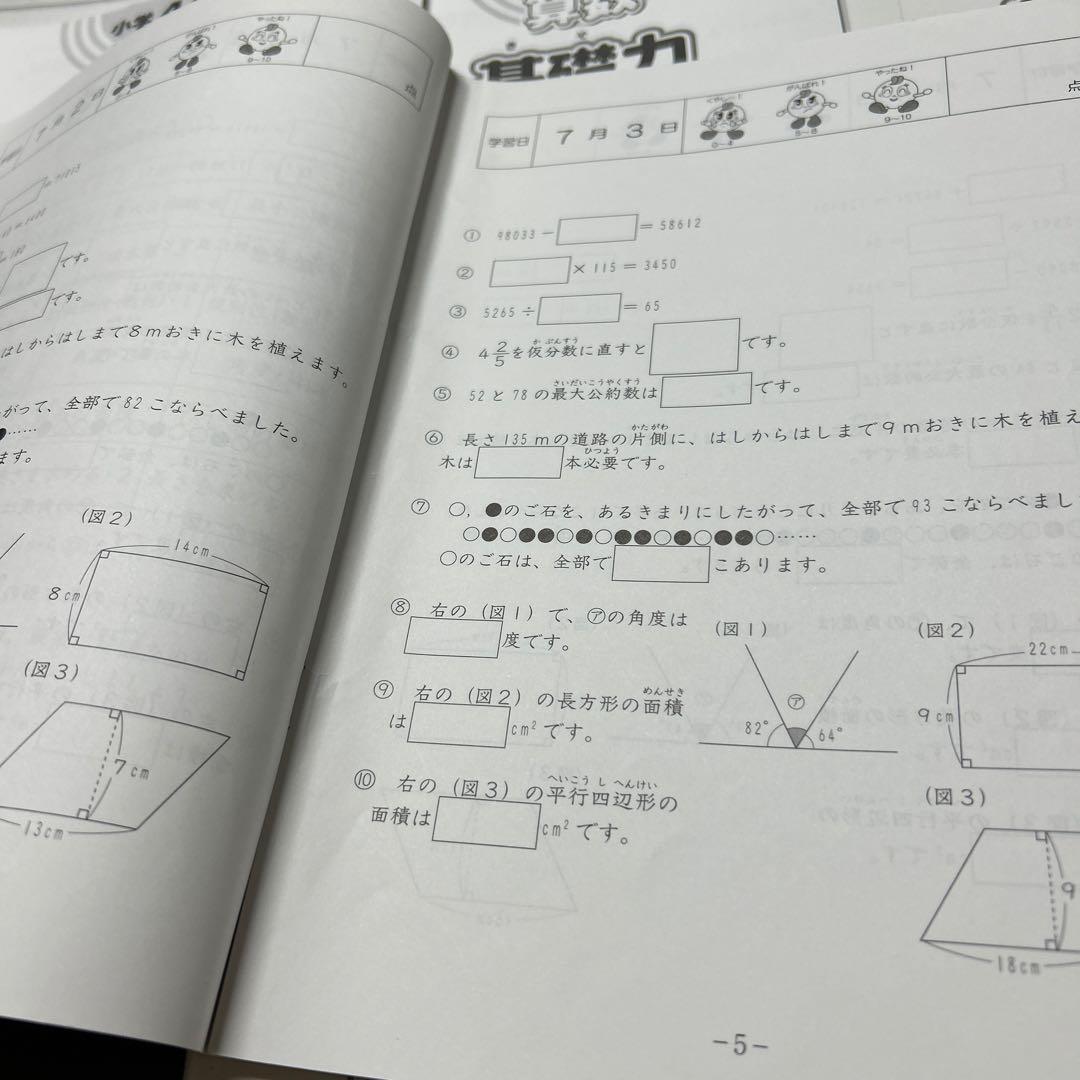 小学4
算数
基礎力
7月2日
点
です。
です。
はしからはしまで8mおきに木を植えます。
がって、全部で82こならべました。
ます。
(図2)
14cm
8cm
(図3)
7cm
13cm
学習日 7月3日
がんばれ!
やったね!
0~4
5~8
9~10
点
① 98033 − □ = 58612
② □ × 115 = 3450
③ 5265 ÷ □ = 65
④ 4 2/5 を仮分数に直すと □ です。
⑤ 52と78の最大公約数は □ です。
⑥ 長さ135mの道路の片側に、はしからはしまで9mおきに木を植え
木は □ 本必要です。
⑦ ○, ●のご石を、あるきまりにしたがって、全部で93こならべまし
○●○●●○●○●●○●○●●○……
○のご石は、全部で □ こあります。
⑧ 右の(図1)で、㋐の角度は
□ 度です。
⑨ 右の(図2)の長方形の面積
は □ cm²です。
⑩ 右の(図3)の平行四辺形の
面積は □ cm²です。
(図1)
㋐
82°
64°
(図2)
22cm
9cm
(図3)
9
18cm
-5-